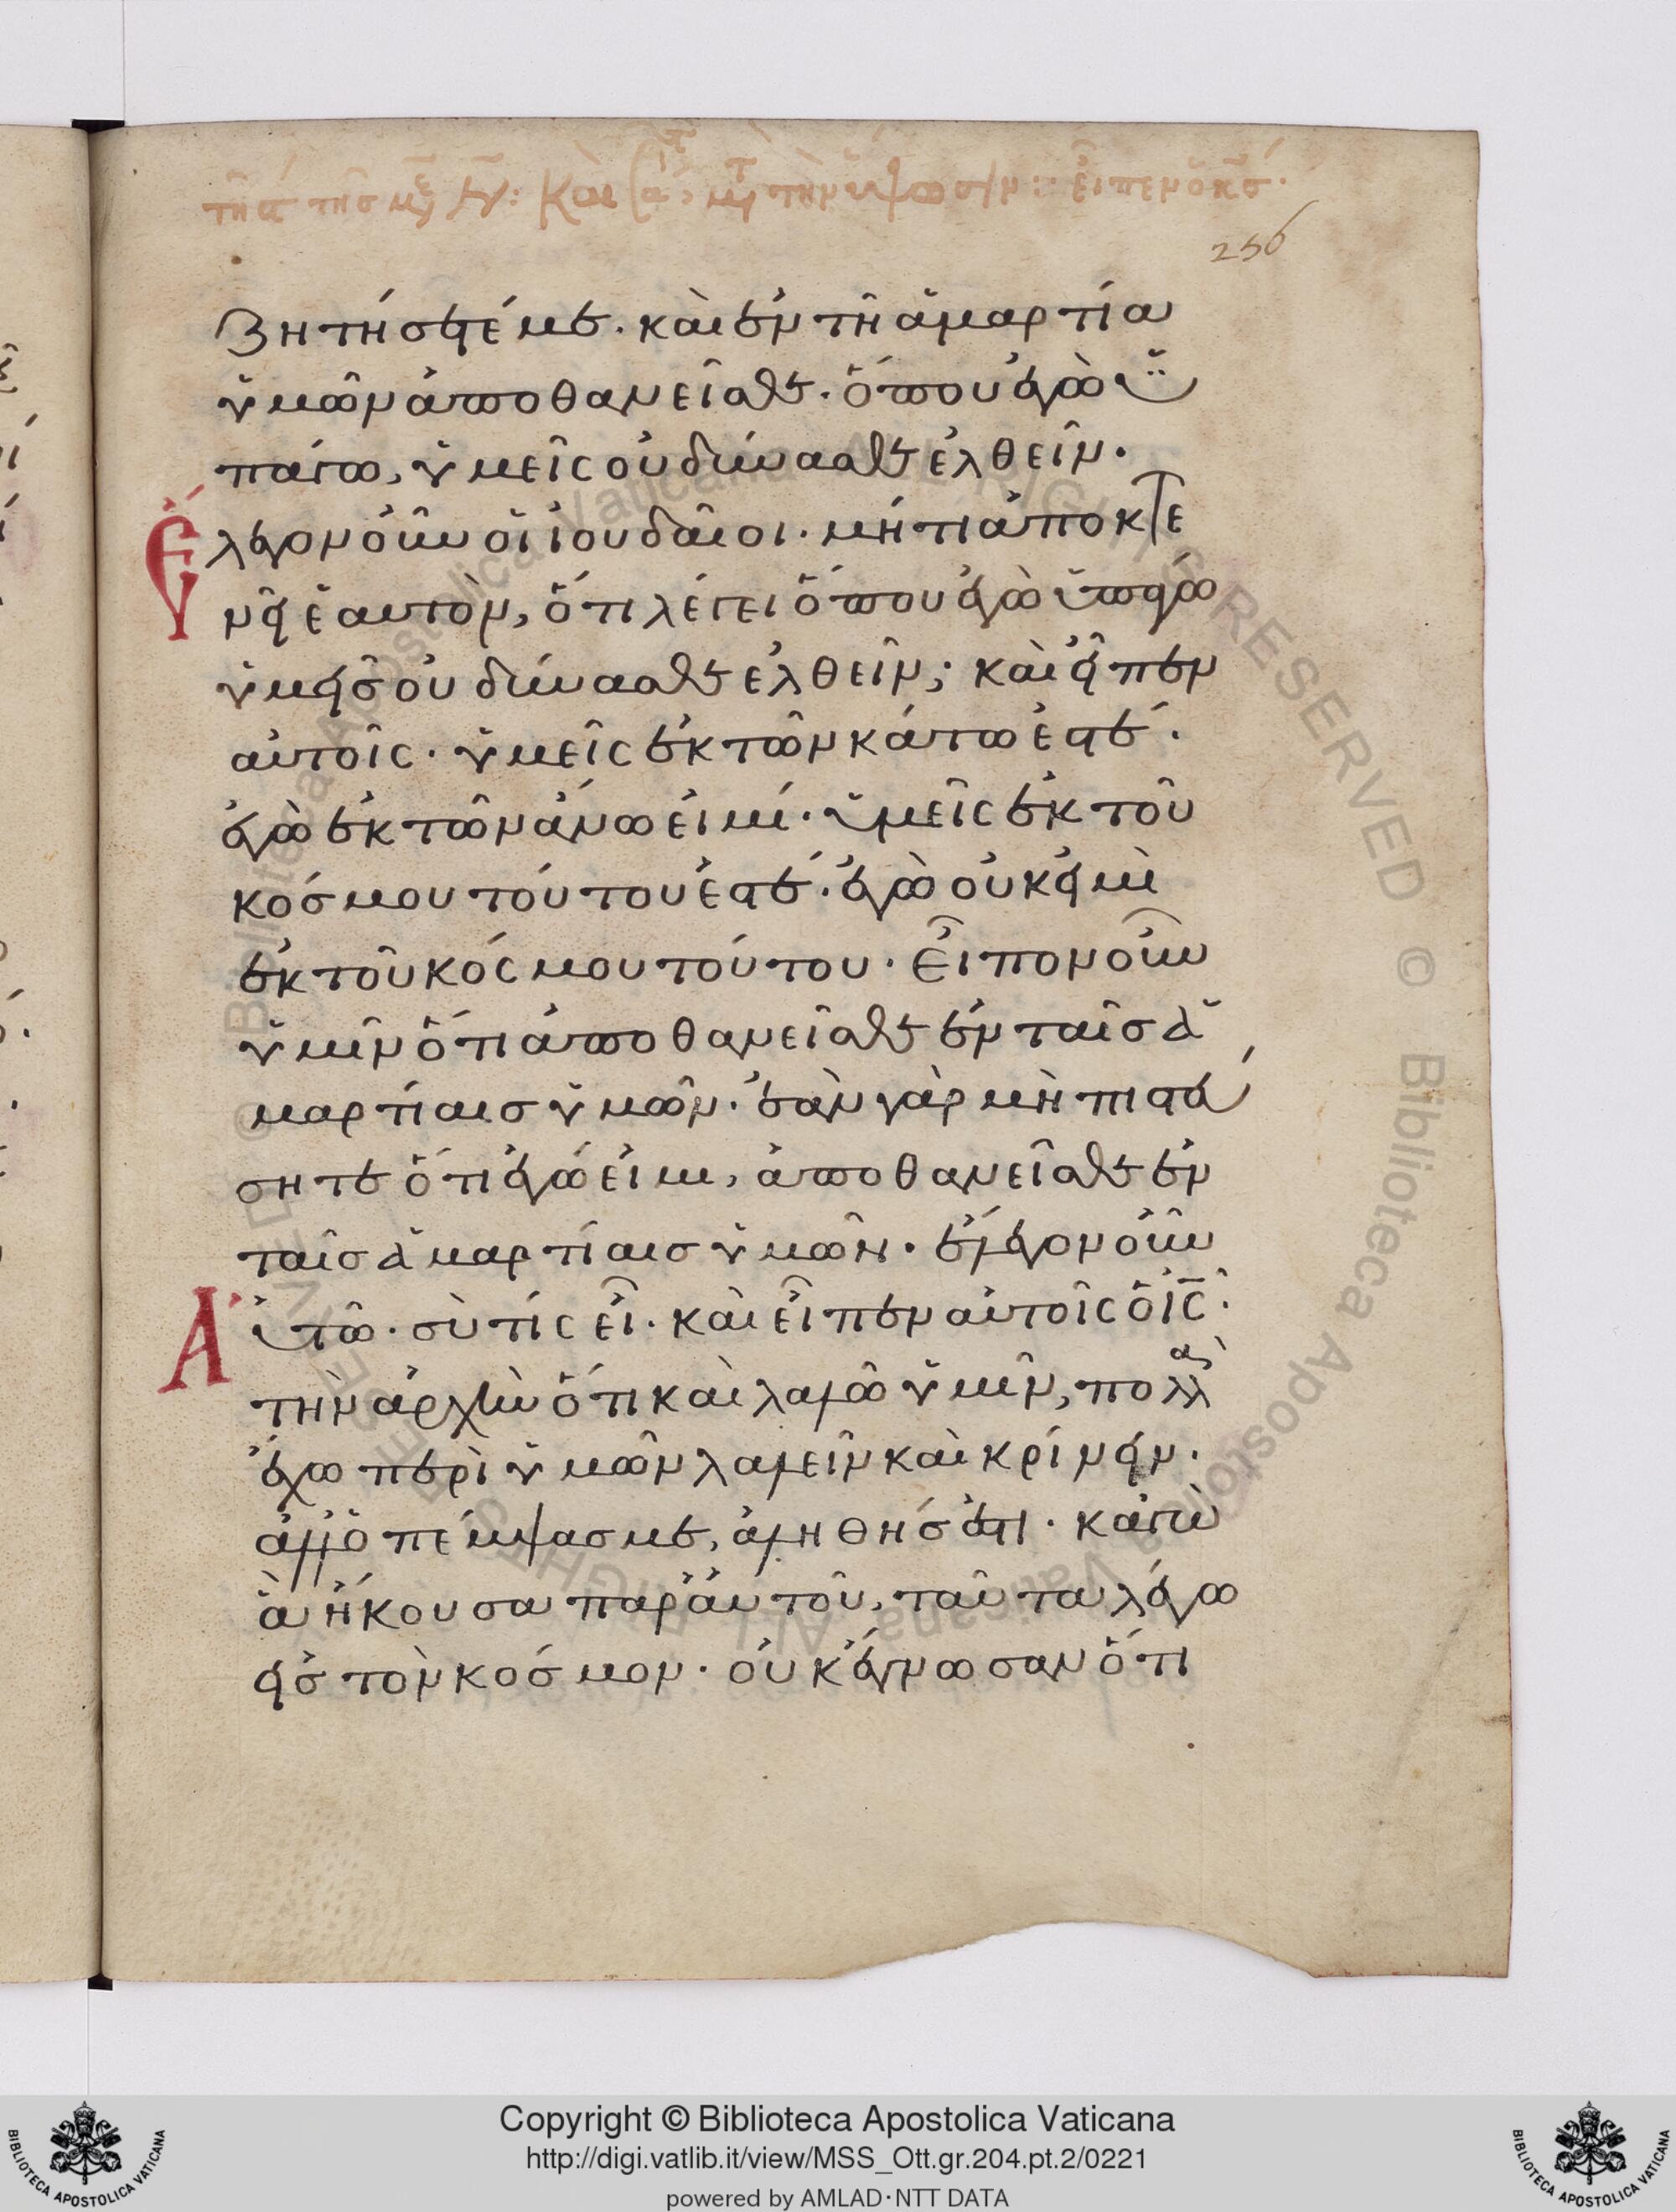 τῆ α τῆς ν: Καὶ τὴν ὕψωσιν: εἶπεν ὁ κς.
256
ζητήσετέ με. καὶ ἐν τῆ ἁμαρτία
ὑμῶν ἀποθανεῖσθε. ὅπου ἐγὼ ὑ
πάγω, ὑμεῖς οὐ δύνασθε ἐλθεῖν.
Ἔλεγον οὖν οἱ ἰουδαῖοι. μήτι ἀποκτε
νεῖ ἑαυτὸν, ὅτι λέγει ὅπου ἐγὼ ὑπάγω
ὑμεῖς οὐ δύνασθε ἐλθεῖν; καὶ εἶπεν
αὐτοῖς. ὑμεῖς ἐκ τῶν κάτω ἐστέ.
ἐγὼ ἐκ τῶν ἄνω εἰμί. ὑμεῖς ἐκ τοῦ
κόσμου τούτου ἐστέ. ἐγὼ οὐκ εἰμὶ
ἐκ τοῦ κόσμου τούτου. εἶπον οὖν
ὑμῖν ὅτι ἀποθανεῖσθε ἐν ταῖς ἁ
μαρτίαις ὑμῶν. ἐὰν γὰρ μὴ πιστεύ
σητε ὅτι ἐγώ εἰμι, ἀποθανεῖσθε ἐν
ταῖς ἁμαρτίαις ὑμῶν. ἔλεγον οὖν
Αὐτῶ. σὺ τίς εἶ. καὶ εἶπεν αὐτοῖς ὁ ις.
τὴν ἀρχὴν ὅτι καὶ λαλῶ ὑμῖν, πολλὰ
ἔχω περὶ ὑμῶν λαλεῖν καὶ κρίνειν.
ἀλλ' ὁ πέμψας με, ἀληθής ἐστι. κἀγὼ
ἃ ἤκουσα παρ' αὐτοῦ, ταῦτα λέγω
εἰς τὸν κόσμον. οὐκ ἔγνωσαν ὅτι
Copyright © Biblioteca Apostolica Vaticana
http://digi.vatlib.it/view/MSS_Ott.gr.204.pt.2/0221
powered by AMLAD·NTT DATA